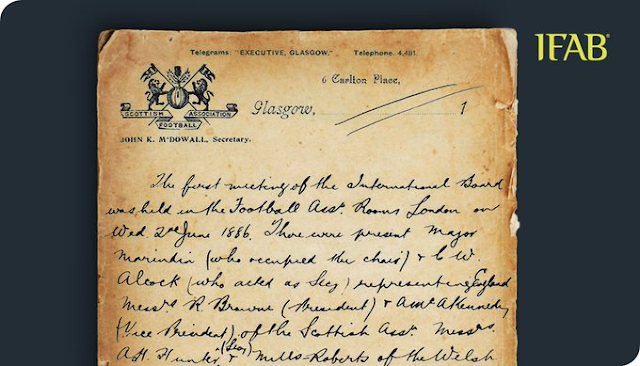 IFAB
Telegrams: "EXECUTIVE, GLASGOW." Telephone. 4,491.
6 Carlton Place,
Glasgow, 1
SCOTTISH ASSOCIATION
FOOTBALL
JOHN K. M'DOWALL, Secretary.
The first meeting of the International Board
was held in the Football Assn. Rooms London on
Wed. 2nd June 1886. There were present Major
Marindin (who occupied the chair) & C W.
Alcock (who acted as Secy) representing England
Messrs R. Browne (President) & A McA Kennedy
(Vice President) of the Scottish Assn. Messrs.
A.H. Hunter (Secy) & Mills-Roberts of the Welsh